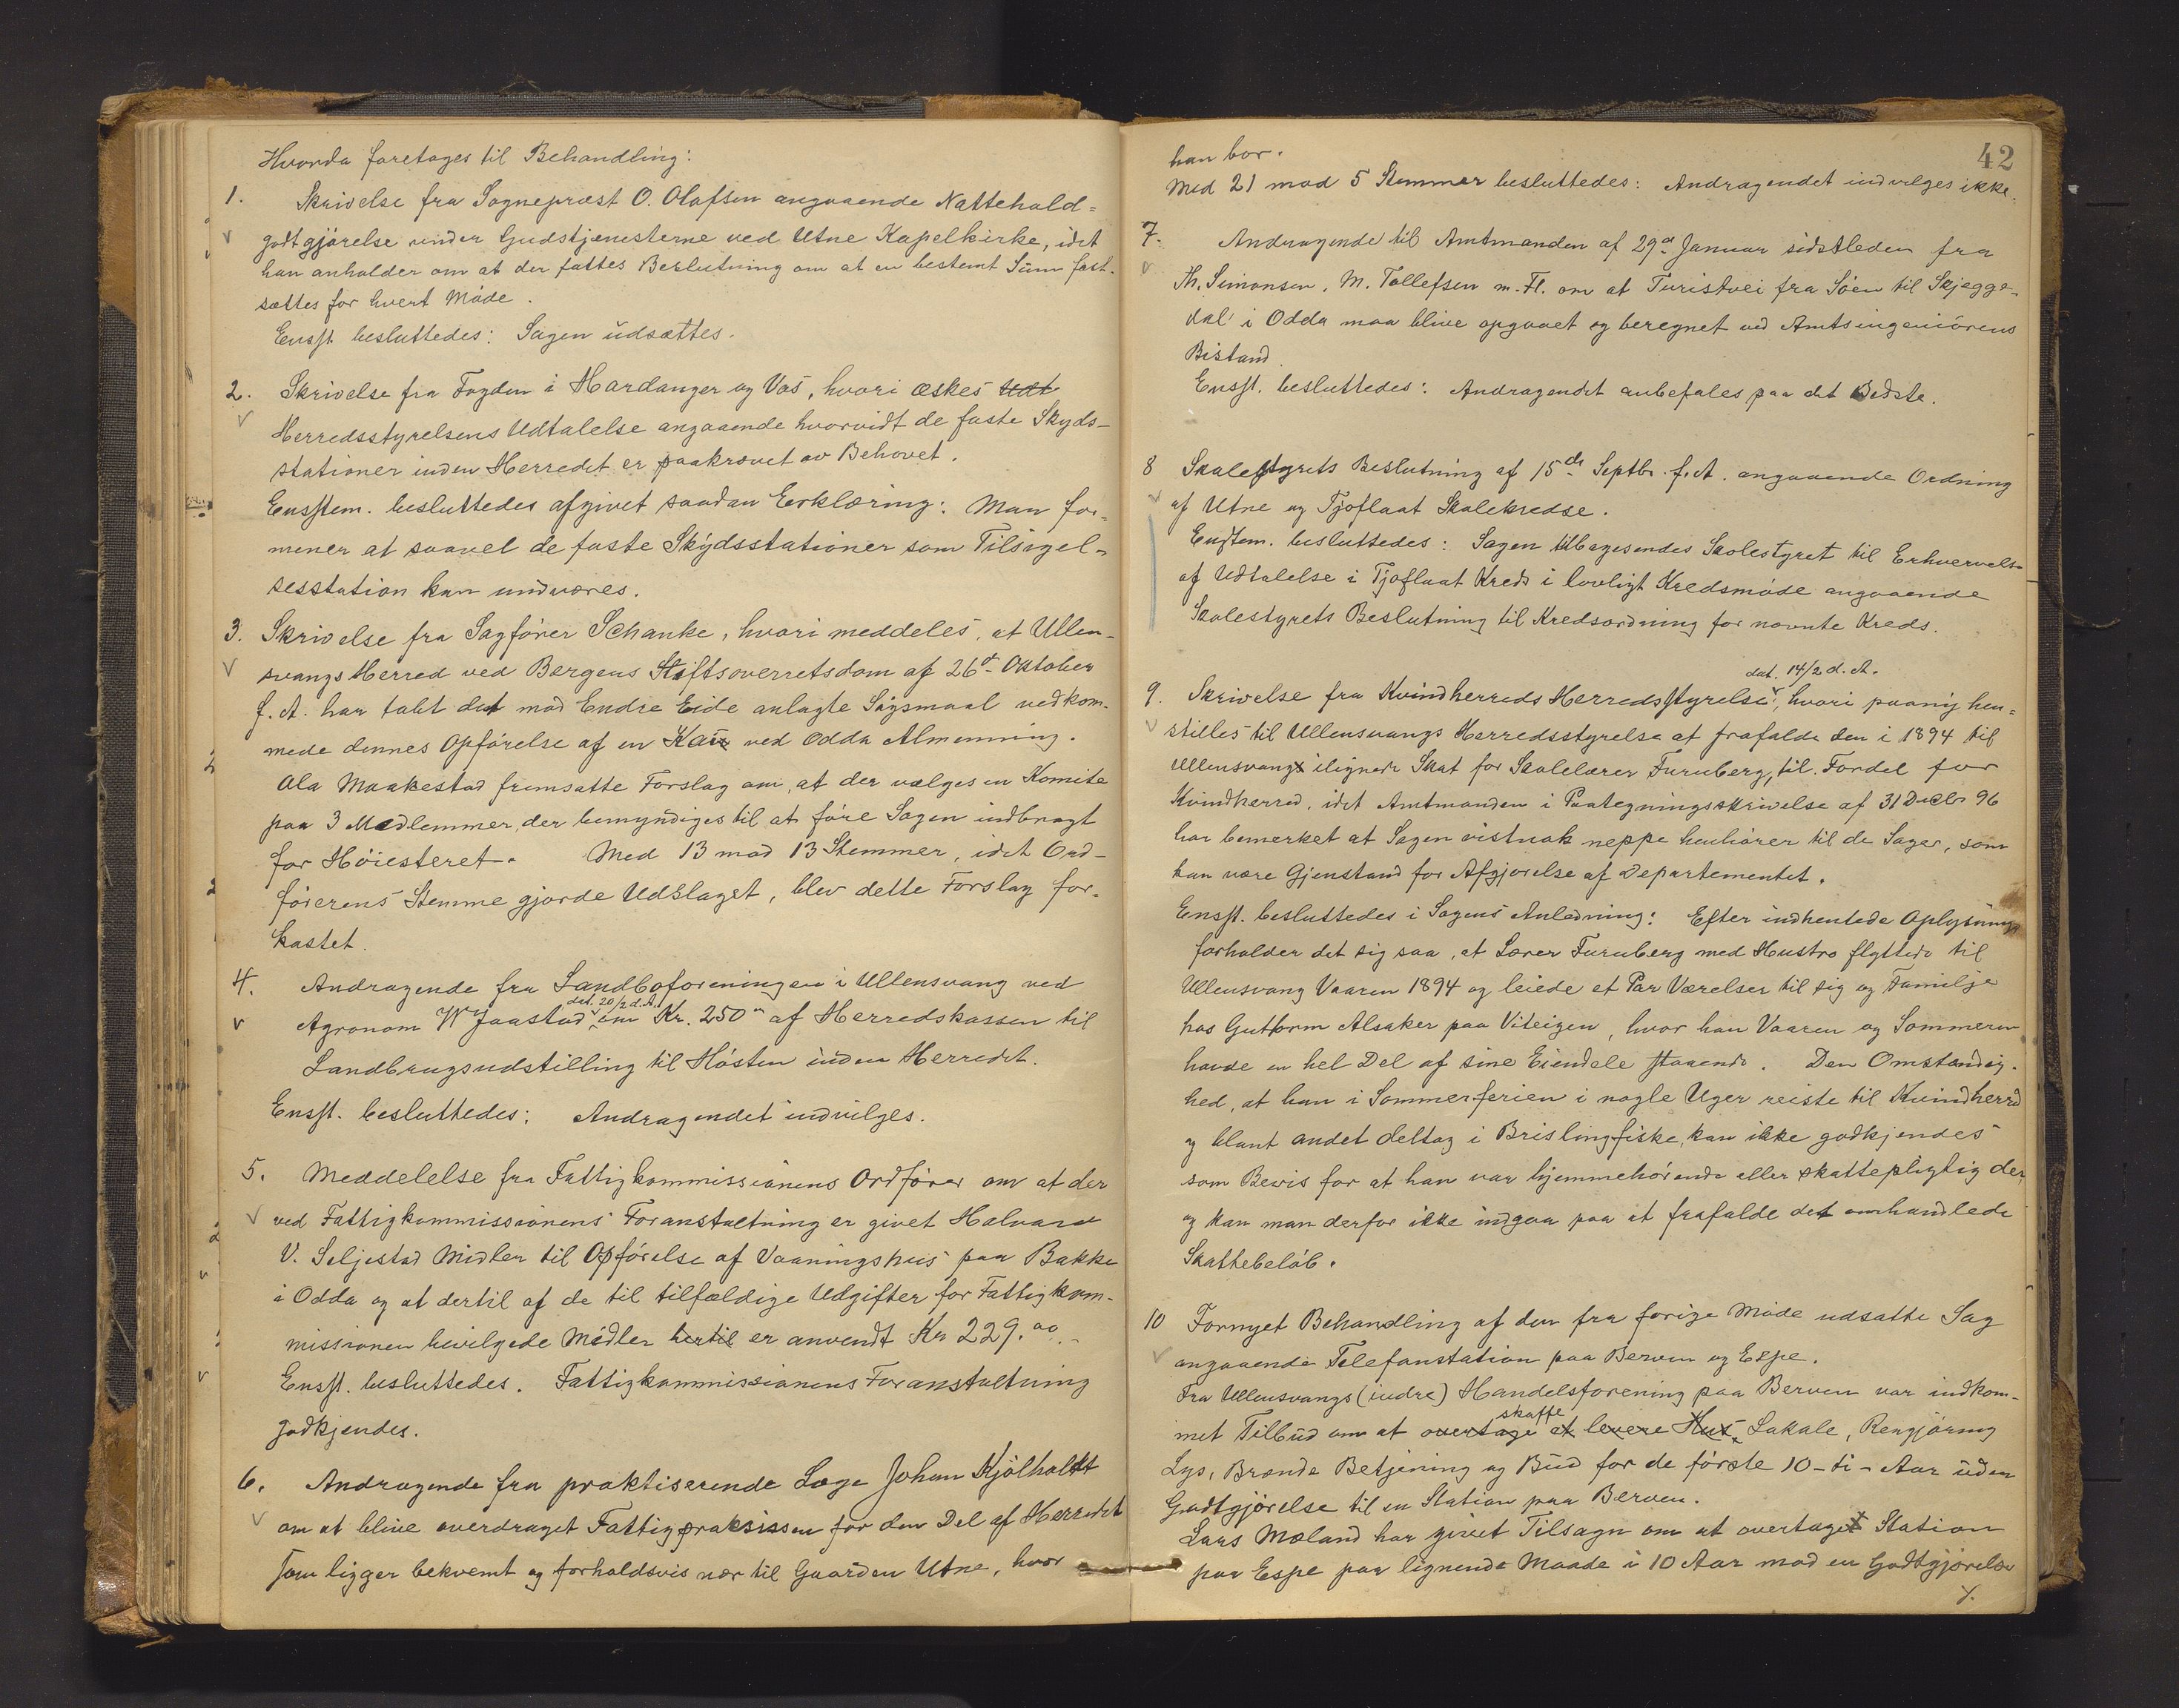 Hvorda foretages til Behandling:
1. Skrivelse fra Sogneprest O. Olafsen angaaende Nattehold-
godtgjørelse under Gudstjenesterne ved Utne Kapelkirke, idet
han anholder om at der fattes Beslutning om at en bestemt Sum fast-
sættes for hvert Møde.
Enst. besluttedes: Sagen udsættes.
2. Skrivelse fra Fogden i Hardanger og Vos, hvori æskes Udt
Herredsstyrelsens Udtalelse angaaende hvorvidt de faste Skyds-
stationer inden Herredet er paakrævet av Behovet.
Enstem. besluttedes afgivet saadan Erklæring: Man for-
mener at saavel de faste Skydsstationer som Tilsigel-
sesstation kan undværes.
3. Skrivelse fra Sagfører Schanke, hvori meddeles, at Ullen-
svangs Herred ved Bergens Stiftsoverretsdom af 26d Oktober
f. A. har tabt det mod Endre Eide anlagte Søgsmaal vedkom-
mede dennes Opførelse af en Kai ved Odda Almenning.
Ola Maakestad fremsatte Forslag om, at der vælges en Komite
paa 3 Medlemmer, der bemyndiges til at føre Sagen indbragt
for Høiesteret. Med 13 mod 13 Stemmer, idet Ord-
førerens Stemme gjorde Udslaget, blev dette Forslag for-
kastet.
4. Andragende fra Landboforeningen i Ullensvang ved
dat. 20/2 d. A.
Agronom W Jaastad om Kr. 250 " af Herredskassen til
Landbrugsudstilling til Høsten inden Herredet.
Enst. besluttedes: Andragendet indvilges.
5. Meddelelse fra Fattigkommissionens Ordfører om at der
ved Fattigkommissionens Foranstaltning er givet Halvard
V. Seljestad Midler til Opførelse af Vaaningshus paa Bakke
i Odda og at dertil af de til tilfældige Udgifter for Fattigkom-
missionen bevilgede Midler hertil er anvendt Kr 229.00
Enst. besluttedes. Fattigkommissionens Foranstaltning
godkjendes.
6. Andragende fra praktiserende Læge Johan Kjølholdt
om at blive overdraget Fattigpraksissen for den Del af Herredet
som ligger bekvemt og forholdsvis nær til Gaarden Utne, hvor
42
han bor.
Med 21 mod 5 Stemmer besluttedes: Andragendet indvilges ikke.
7. Andragende til Amtmanden af 29d Januar sidstleden fra
Th. Simonsen, M. Tollefsen m. Fl. om at Turistvei fra Søen til Skjegge-
dal i Odda maa blive opgaaet og beregnet ved Amtsingeniørens
Bistand.
Enst. besluttedes: Andragendet anbefales paa det Bedste.
8 Skolestyrets Beslutning af 15de Septbr. f. A. angaaende Ordning
af Utne og Tjoflaat Skolekredse.
Enstem. besluttedes: Sagen tilbagesendes Skolestyret til Erhvervelse
af Udtalelse i Tjoflaat Kreds i lovligt Kredsmøde angaaende
Skolestyrets Beslutning til Kredsordning for nævnte Kreds.
dat. 14/2 d. A.
9. Skrivelse fra Kvindherreds Herredsstyrelse, hvori paany hen-
stilles til Ullensvangs Herredsstyrelse at frafalde den i 1894 til
Ullensvang ilignede Skat for Skolelærer Furuberg, til Fordel for
Kvindherred, idet Amtmanden i Paategningsskrivelse af 31 Decbr 96
har bemerket at Sagen vistnok neppe henhører til de Sager, som
kan være Gjenstand for Afgjørelse af Departementet.
Enst. besluttedes i Sagens Anledning: Efter indhentede Oplysning
forholder det sig saa, at Lærer Furuberg med Hustro flyttede til
Ullensvang Vaaren 1894 og leiede et Par Værelser til sig og Familje
hos Guttorm Alsaker paa Viteigen, hvor han Vaaren og Sommeren
havde en hel Del af sine Eiendele staaende. Den Omstændig-
hed, at han i Sommerferien i nogle Uger reiste til Kvindherred
og blant andet deltog i Brislingfiske, kan ikke godkjendes
som Bevis for at han var hjemmehørende eller skattepligtig der,
og kan man derfor ikke indgaa paa at frafalde det omhandlede
Skattebeløb.
10 Fornyet Behandling af den fra forige Møde udsatte Sag
angaaende Telefonstation paa Berven og Espe.
Fra Ullensvangs (indre) Handelsforening paa Berven var indkom-
skaffe
met Tilbud om at overtage at levere Hus, Lokale, Rengjøring
Lys, Brænde Betjening og Bud for de første 10 - ti - Aar uden
Godtgjørelse til en Station paa Berven.
Lars Mæland har givet Tilsagn om at overtage Station
paa Espe paa lignende Maade i 10 Aar mod en Godtgjørelse